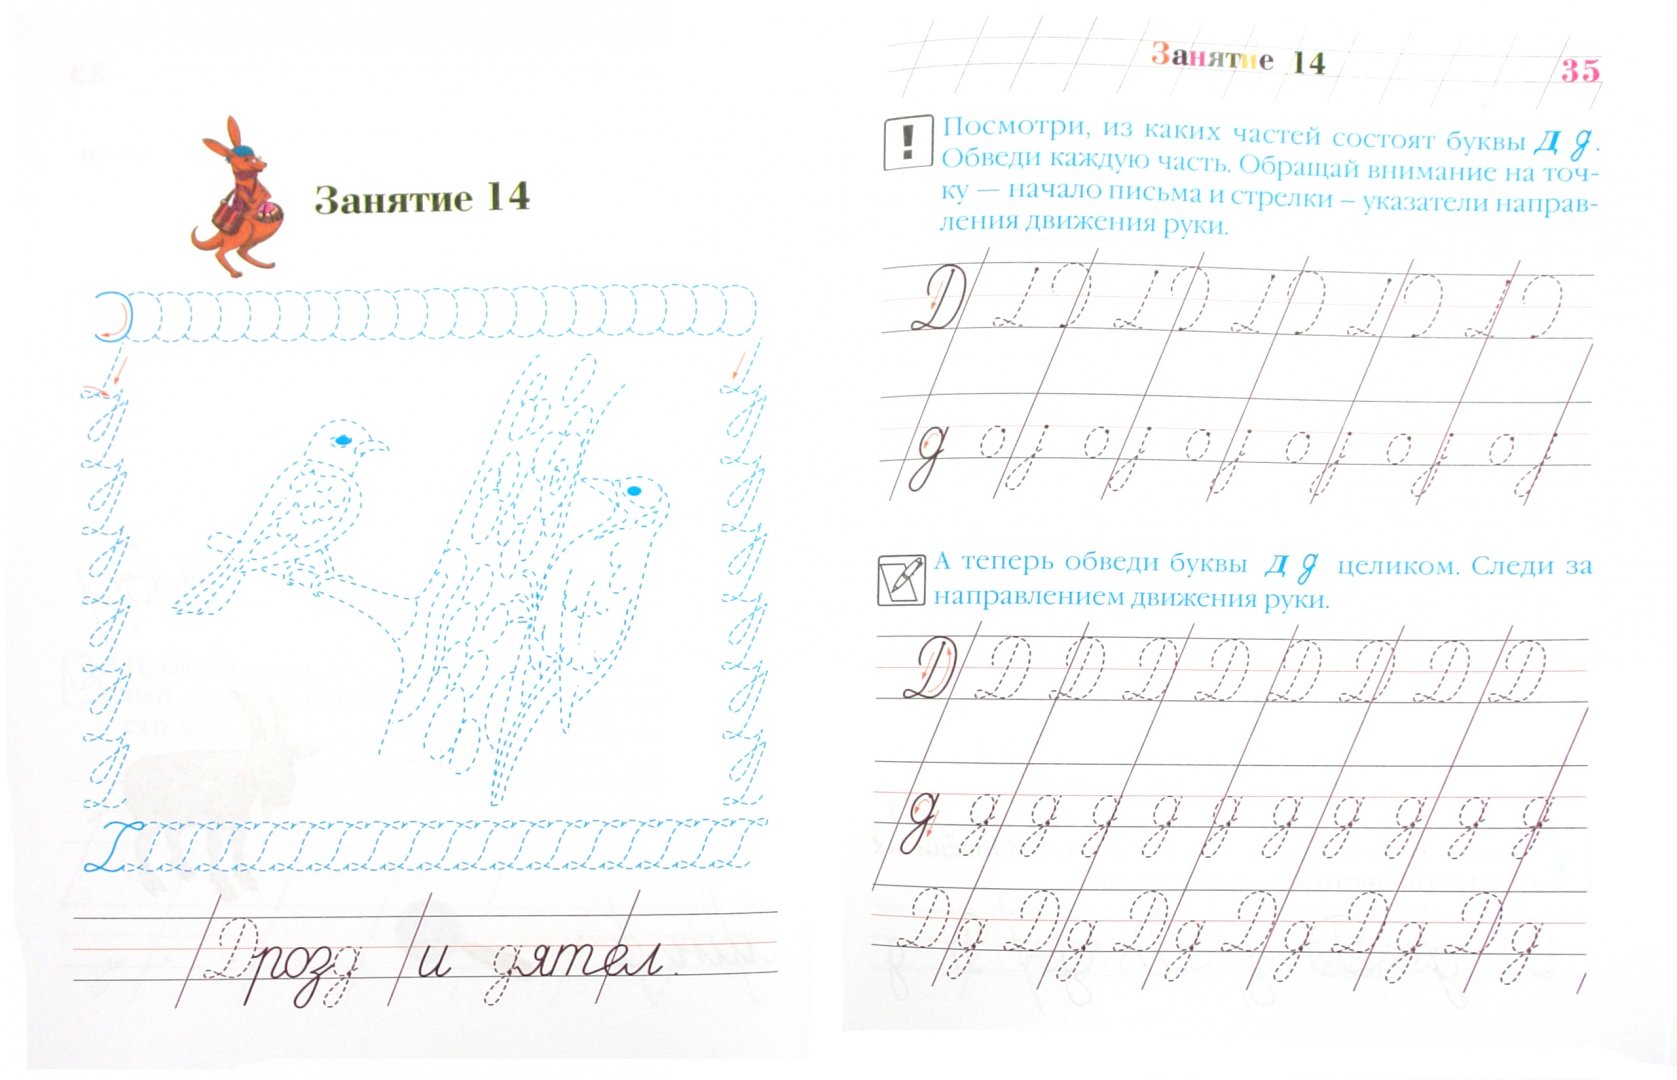 Занятие 14
Дрозд и дятел.
Занятие 14
35
! Посмотри, из каких частей состоят буквы Д д.
Обведи каждую часть. Обращай внимание на точ-
ку — начало письма и стрелки – указатели направ-
ления движения руки.
Д
д
А теперь обведи буквы Д д целиком. Следи за
направлением движения руки.
Д Д Д Д Д Д Д Д Д
д д д д д д д д д д
Д д Д д Д д Д д Д д Д д